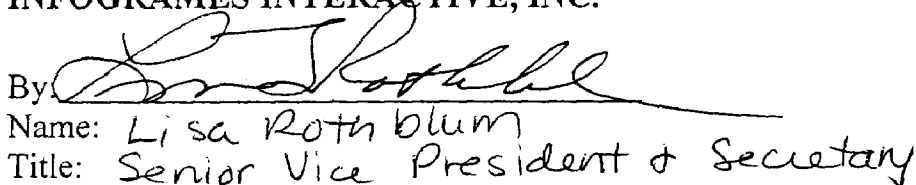 INFOGRAMES INTERACTIVE, INC.
By:
Name: Lisa Rothblum
Title: Senior Vice President & Secretary